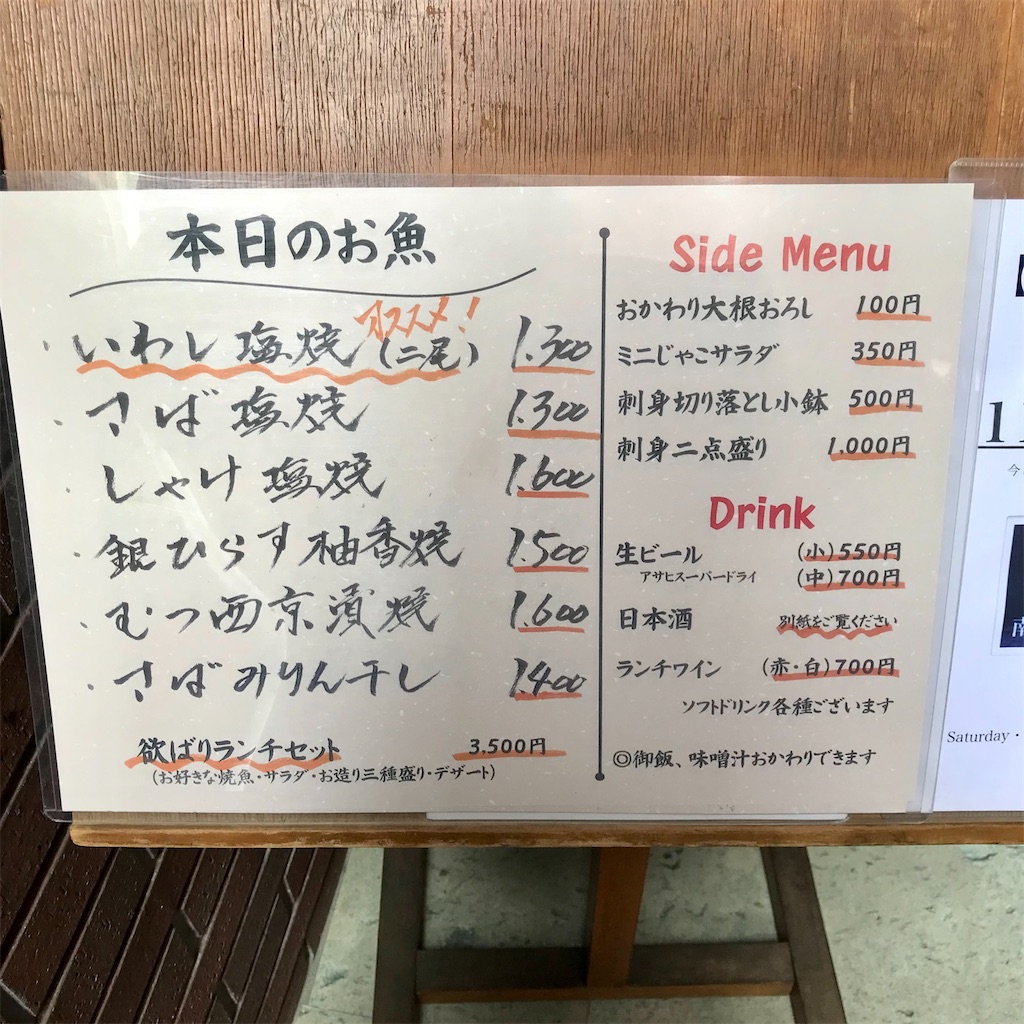 本日のお魚
オススメ!
いわし塩焼(二尾) 1.300
さば塩焼 1.300
しゃけ塩焼 1.600
銀ひらす柚香焼 1.500
むつ西京漬焼 1.600
さばみりん干し 1.400
欲ばりランチセット 3.500円
(お好きな焼魚・サラダ・お造り三種盛り・デザート)
Side Menu
おかわり大根おろし 100円
ミニじゃこサラダ 350円
刺身切り落とし小鉢 500円
刺身二点盛り 1,000円
Drink
生ビール (小)550円
アサヒスーパードライ (中)700円
日本酒 別紙をご覧ください
ランチワイン (赤・白)700円
ソフトドリンク各種ございます
◎御飯、味噌汁おかわりできます
1
今
南
Saturday・